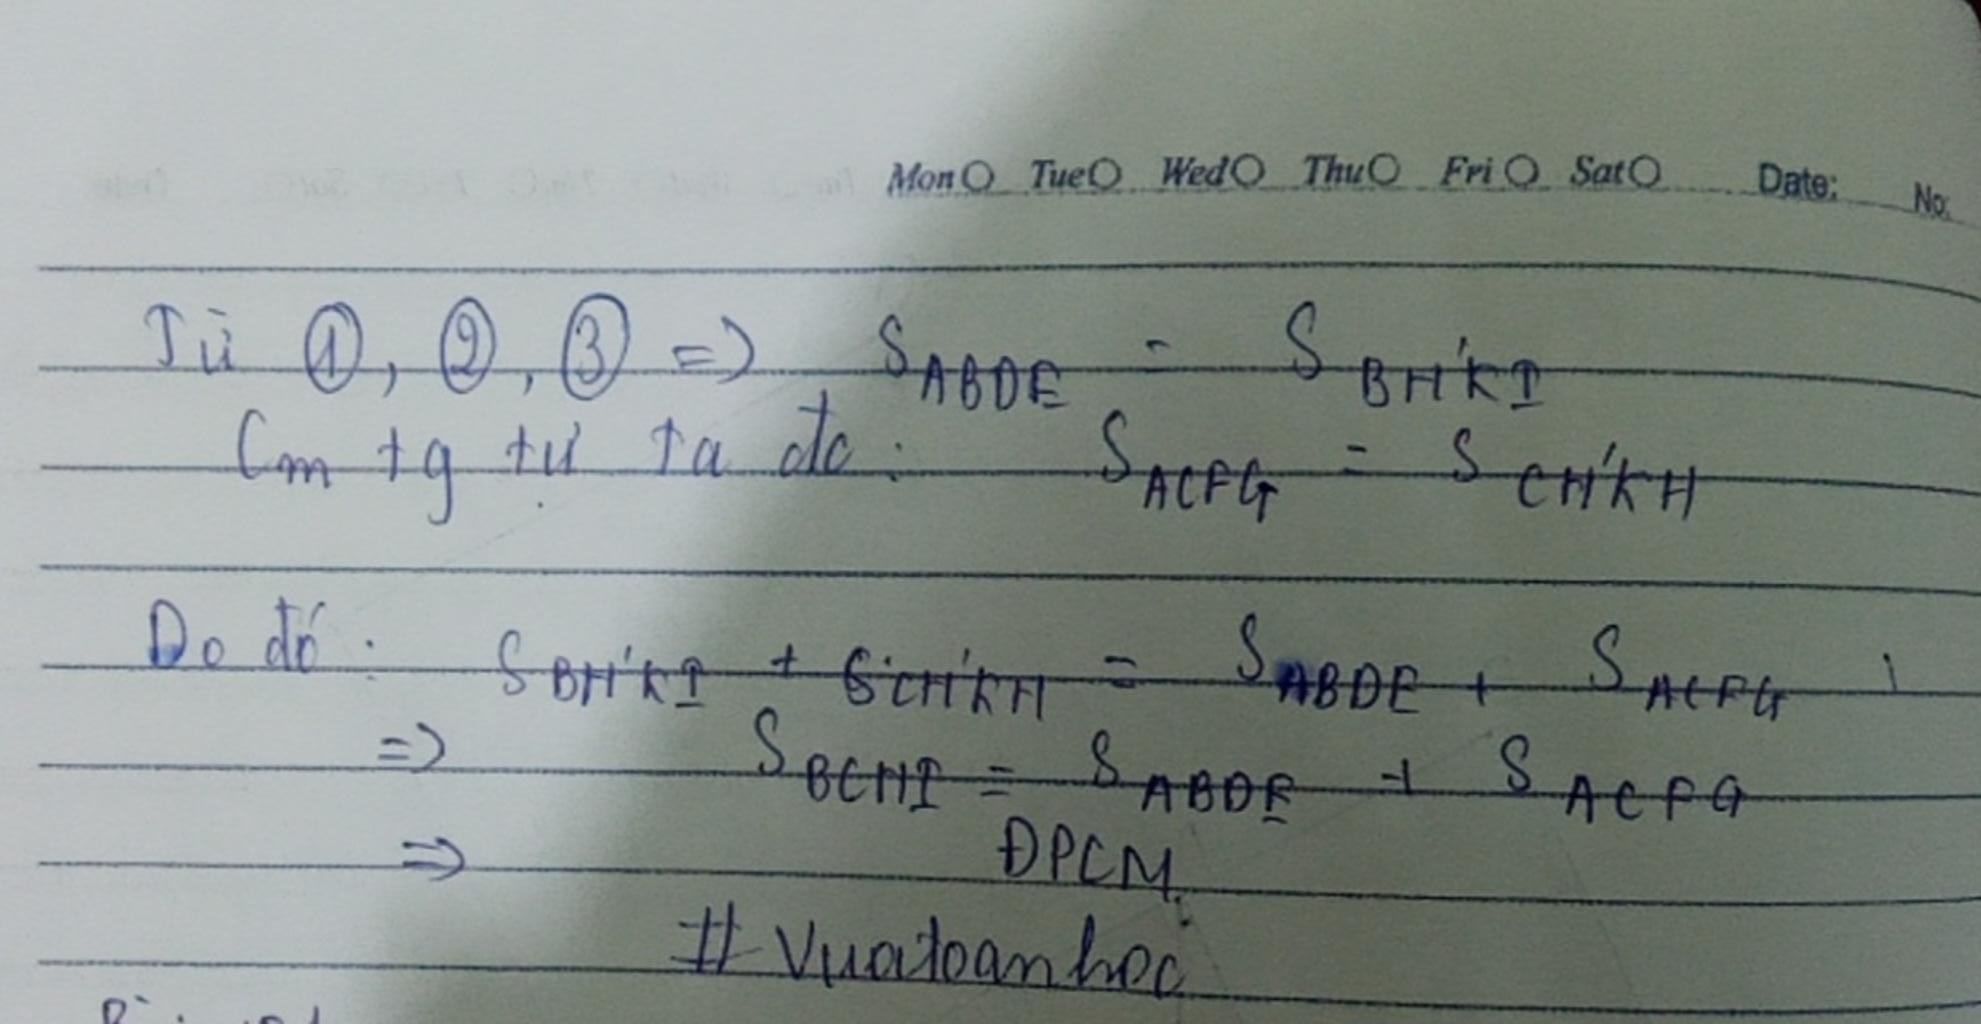 Mon Tue Wed Thu Fri Sat Date: No:
Từ ①, ②, ③ => S ABDE = S BH'KI
Cm tg tự ta đc : S ACFG = S CH'KH
Do đó : S BH'KI + S CH'KH = S ABDE + S ACFG
=> S BCHI = S ABDE + S ACFG
=> ĐPCM.
# Vuatoanhoc